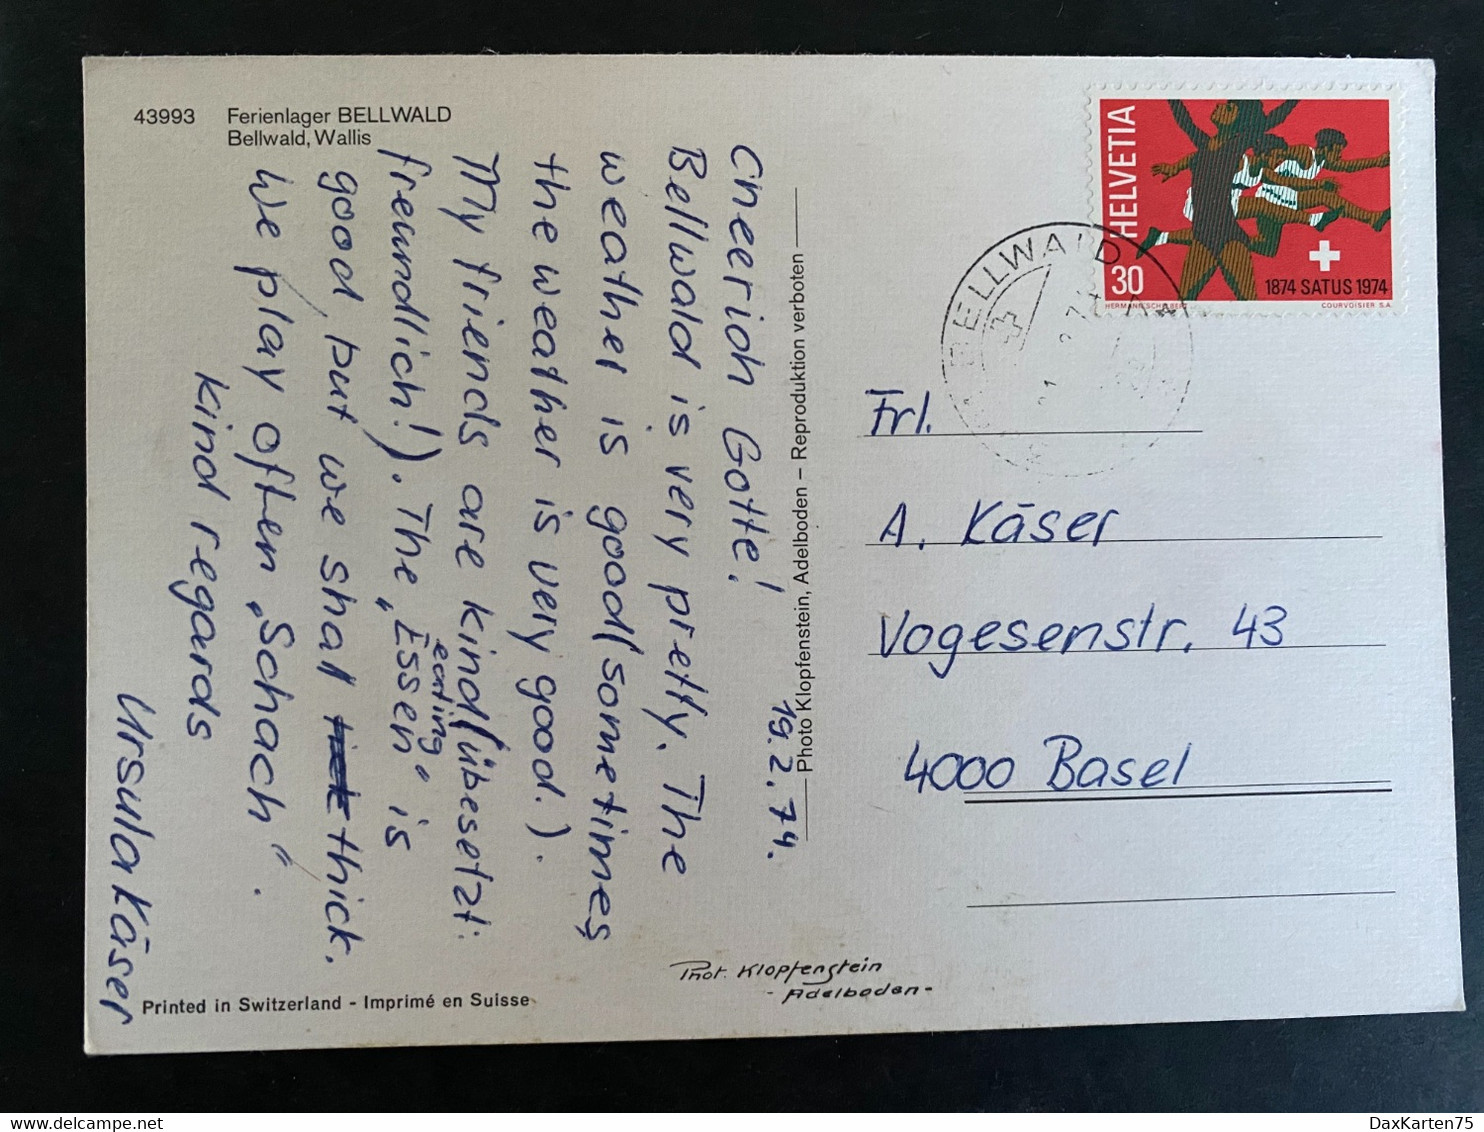 43993 Ferienlager BELLWALD
Bellwald, Wallis
19.2.74.
Cheerioh Gotte!
Bellwald is very pretty. The
weather is good (sometimes
the weather is very good.).
My friends are kind (übesetzt:
freundlich!). The „Essen" is
eating
good, but we shal thick.
We play often „Schach".
kind regards
Ursula Käser
Printed in Switzerland - Imprimé en Suisse
Photo Klopfenstein, Adelboden – Reproduktion verboten
Phot. Klopfenstein
- Adelboden -
HELVETIA
30
1874 SATUS 1974
COURVOISIER S.A.
BELLWALD
Frl.
A. Käser
Vogesenstr. 43
4000 Basel
delcampe.net
DaxKarten75